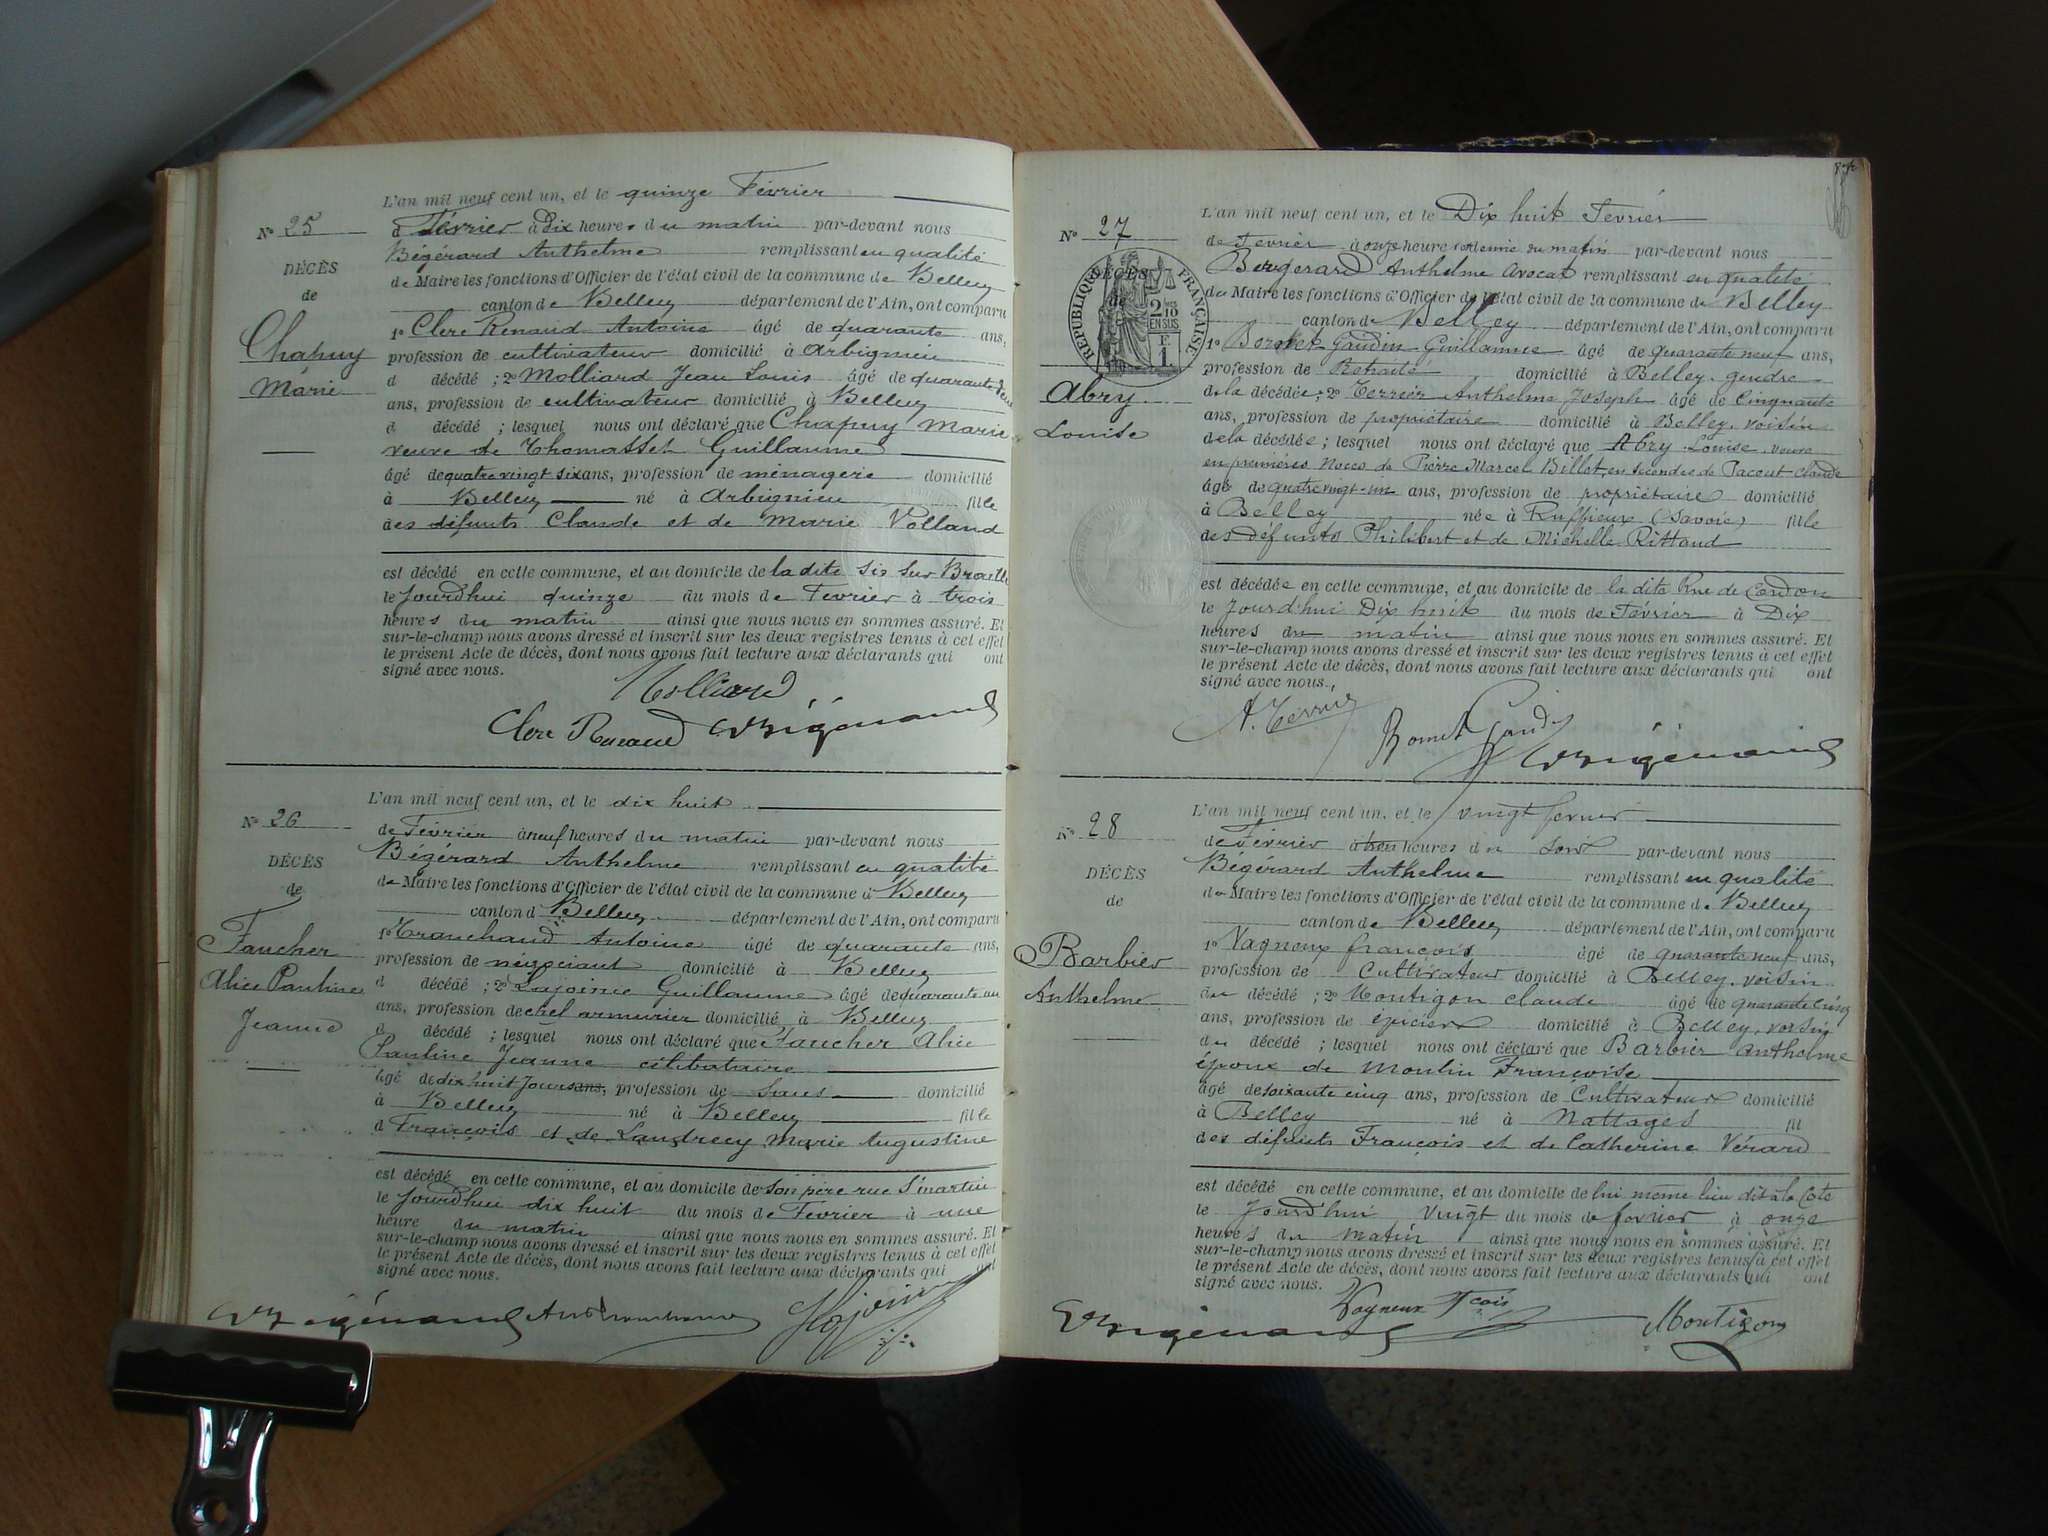 L'an mil neuf cent un, et le quinze Février
N° 25
à Février à Dix heures du matin par-devant nous
DÉCÈS
Bégérard Anthelme remplissant en qualité
de
de Maire les fonctions d'Officier de l'état civil de la commune de Belley
canton de Belley département de l'Ain, ont comparu
Chapuy
Marie
1° Clerc Renaud Antoine âgé de quarante ans,
profession de cultivateur domicilié à Arbignieu
d décédé ; 2° Molliard Jean Louis âgé de quarante
ans, profession de cultivateur domicilié à Belley
d décédé ; lesquel nous ont déclaré que Chapuy Marie
veuve de Thomasset Guillaume
âgé de quatre vingt six ans, profession de ménagère domicilié
à Belley né à Arbignieu fille
des défunts Claude et de Marie Volland
est décédé en cette commune, et au domicile de la dite sis sur
le Jourdhui quinze du mois de Février à trois
heures du matin ainsi que nous nous en sommes assuré. Et
sur-le-champ nous avons dressé et inscrit sur les deux registres tenus à cet effet
le présent Acte de décès, dont nous avons fait lecture aux déclarants qui ont
signé avec nous.
Molliard
Clerc Renaud Bégérard
L'an mil neuf cent un, et le dix huit
N° 26
de Février à neuf heures du matin par-devant nous
DÉCÈS
Bégérard Anthelme remplissant en qualité
de
de Maire les fonctions d'Officier de l'état civil de la commune d Belley
canton d Belley département de l'Ain, ont comparu
Faucher
Alice Pauline
Jeanne
1° Tranchand Antoine âgé de quarante ans,
profession de négociant domicilié à Belley
d décédé ; 2° Lajoinie Guillaume âgé de quarante un
ans, profession de chef armurier domicilié à Belley
d décédé ; lesquel nous ont déclaré que Faucher Alice
Pauline Jeanne célibataire
âgé de dix huit jours ans, profession de sans domicilié
à Belley né à Belley fille
d François et de Landrecy Marie Augustine
est décédé en cette commune, et au domicile de son père rue St martin
le Jourdhui dix huit du mois de Février à une
heure du matin ainsi que nous nous en sommes assuré. Et
sur-le-champ nous avons dressé et inscrit sur les deux registres tenus à cet effet
le présent Acte de décès, dont nous avons fait lecture aux déclarants qui ont
signé avec nous.
Bégérard Ant Tranchand Lajoinie
L'an mil neuf cent un, et le Dix huit Février
N° 27
de Fevrier à onze heure et demie du matin par-devant nous
DÉCÈS
de
RÉPUBLIQUE FRANÇAISE
2/10 EN SUS
F. 1
Bergerard Anthelme Avocat remplissant en qualité
de Maire les fonctions d'Officier de l'état civil de la commune de Belley
canton de Belley département de l'Ain, ont comparu
Abry
Louise
1° Bornet Gaudin Guillaume âgé de quarante neuf ans,
profession de Retraité domicilié à Belley, gendre
de la décédée ; 2° Terrier Anthelme Joseph âgé de Cinquante
ans, profession de propriétaire domicilié à Belley, voisin
de la décédée ; lesquel nous ont déclaré que Abry Louise veuve
en premières Noces de Pierre Marcel Billet, en secondes de Pacout Claude
âgé de quatre vingt-un ans, profession de propriétaire domicilié
à Belley née à Ruffieux (Savoie) fille
des Défunts Philibert et de Michelle Rittaud
est décédée en cette commune, et au domicile de la dite Rue de Cordon
le Jourd'hui Dix huit du mois de Février à Dix
heures du matin ainsi que nous nous en sommes assuré. Et
sur-le-champ nous avons dressé et inscrit sur les deux registres tenus à cet effet
le présent Acte de décès, dont nous avons fait lecture aux déclarants qui ont
signé avec nous.
A. Terrier
Bornet Gaudin Bégérard
L'an mil neuf cent un, et le vingt fevrier
N° 28
de Février à trois heures du soir par-devant nous
DÉCÈS
Bégérard Anthelme remplissant en qualité
de
de Maire les fonctions d'Officier de l'état civil de la commune de Belley
canton de Belley département de l'Ain, ont comparu
Barbier
Anthelme
1° Vagneux françois âgé de quarante neuf ans,
profession de Cultivateur domicilié à Belley, voisin
du décédé ; 2° Montigon Claude âgé de quarante cinq
ans, profession de épicier domicilié à Belley, voisin
du décédé ; lesquel nous ont déclaré que Barbier Anthelme
époux de Moulin Françoise
âgé de soixante cinq ans, profession de Cultivateur domicilié
à Belley né à Nattages fil
des défunts François et de Catherine Vérard
est décédé en cette commune, et au domicile de lui même lieu dit à la Cote
le Jourd'hui vingt du mois de fevrier à onze
heures du matin ainsi que nous nous en sommes assuré. Et
sur-le-champ nous avons dressé et inscrit sur les deux registres tenus à cet effet
le présent Acte de décès, dont nous avons fait lecture aux déclarants qui ont
signé avec nous.
Bégérard Vagneux fcois Montigon